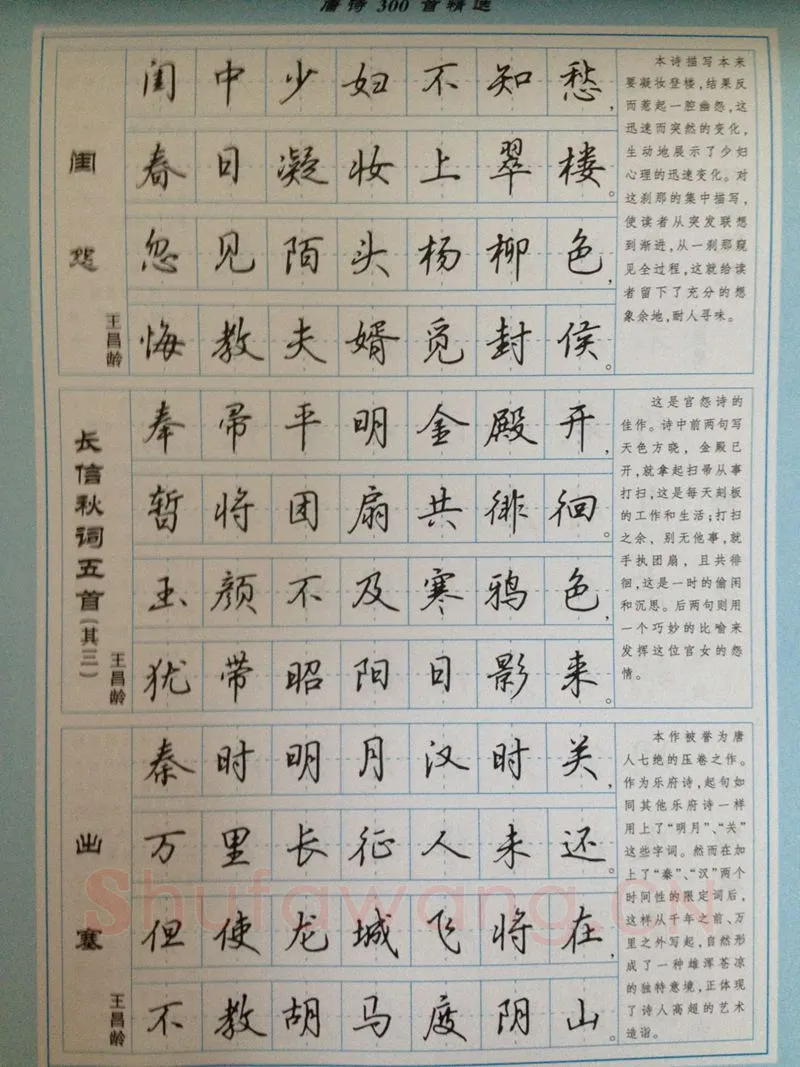 唐诗 300 首精选
闺怨
王昌龄
闺中少妇不知愁，
春日凝妆上翠楼。
忽见陌头杨柳色，
悔教夫婿觅封侯。
本诗描写本来
要凝妆登楼，结果反
而惹起一腔幽怨，这
迅速而突然的变化，
生动地展示了少妇
心理的迅速变化。对
这刹那的集中描写，
使读者从突发联想
到渐进，从一刹那窥
见全过程，这就给读
者留下了充分的想
象余地，耐人寻味。
长信秋词五首（其三）
王昌龄
奉帚平明金殿开，
暂将团扇共徘徊。
玉颜不及寒鸦色，
犹带昭阳日影来。
这是宫怨诗的
佳作。诗中前两句写
天色方晓，金殿已
开，就拿起扫帚从事
打扫，这是每天刻板
的工作和生活；打扫
之余、别无他事，就
手执团扇，且共徘
徊，这是一时的偷闲
和沉思。后两句则用
一个巧妙的比喻来
发挥这位宫女的怨
情。
出塞
王昌龄
秦时明月汉时关，
万里长征人未还。
但使龙城飞将在，
不教胡马度阴山。
本作被誉为唐
人七绝的压卷之作。
作为乐府诗，起句如
同其他乐府诗一样
用上了“明月”、“关”
这些字词。然而在加
上了“秦”、“汉”两个
时间性的限定词后，
这样从千年之前、万
里之外写起，自然形
成了一种雄浑苍凉
的独特意境，正体现
了诗人高超的艺术
造诣。
Shufawang.cn